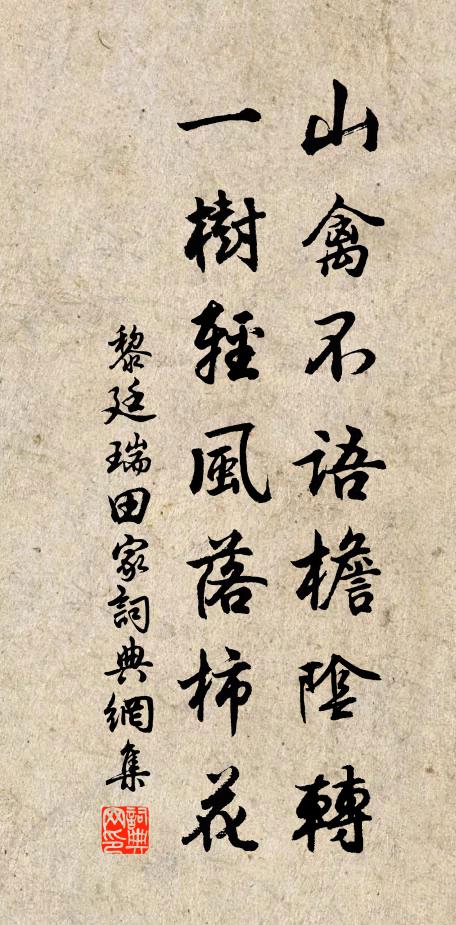 山禽不語檐陰轉
一樹輕風落柿花
黎廷瑞田家詞典網集
詞典网印